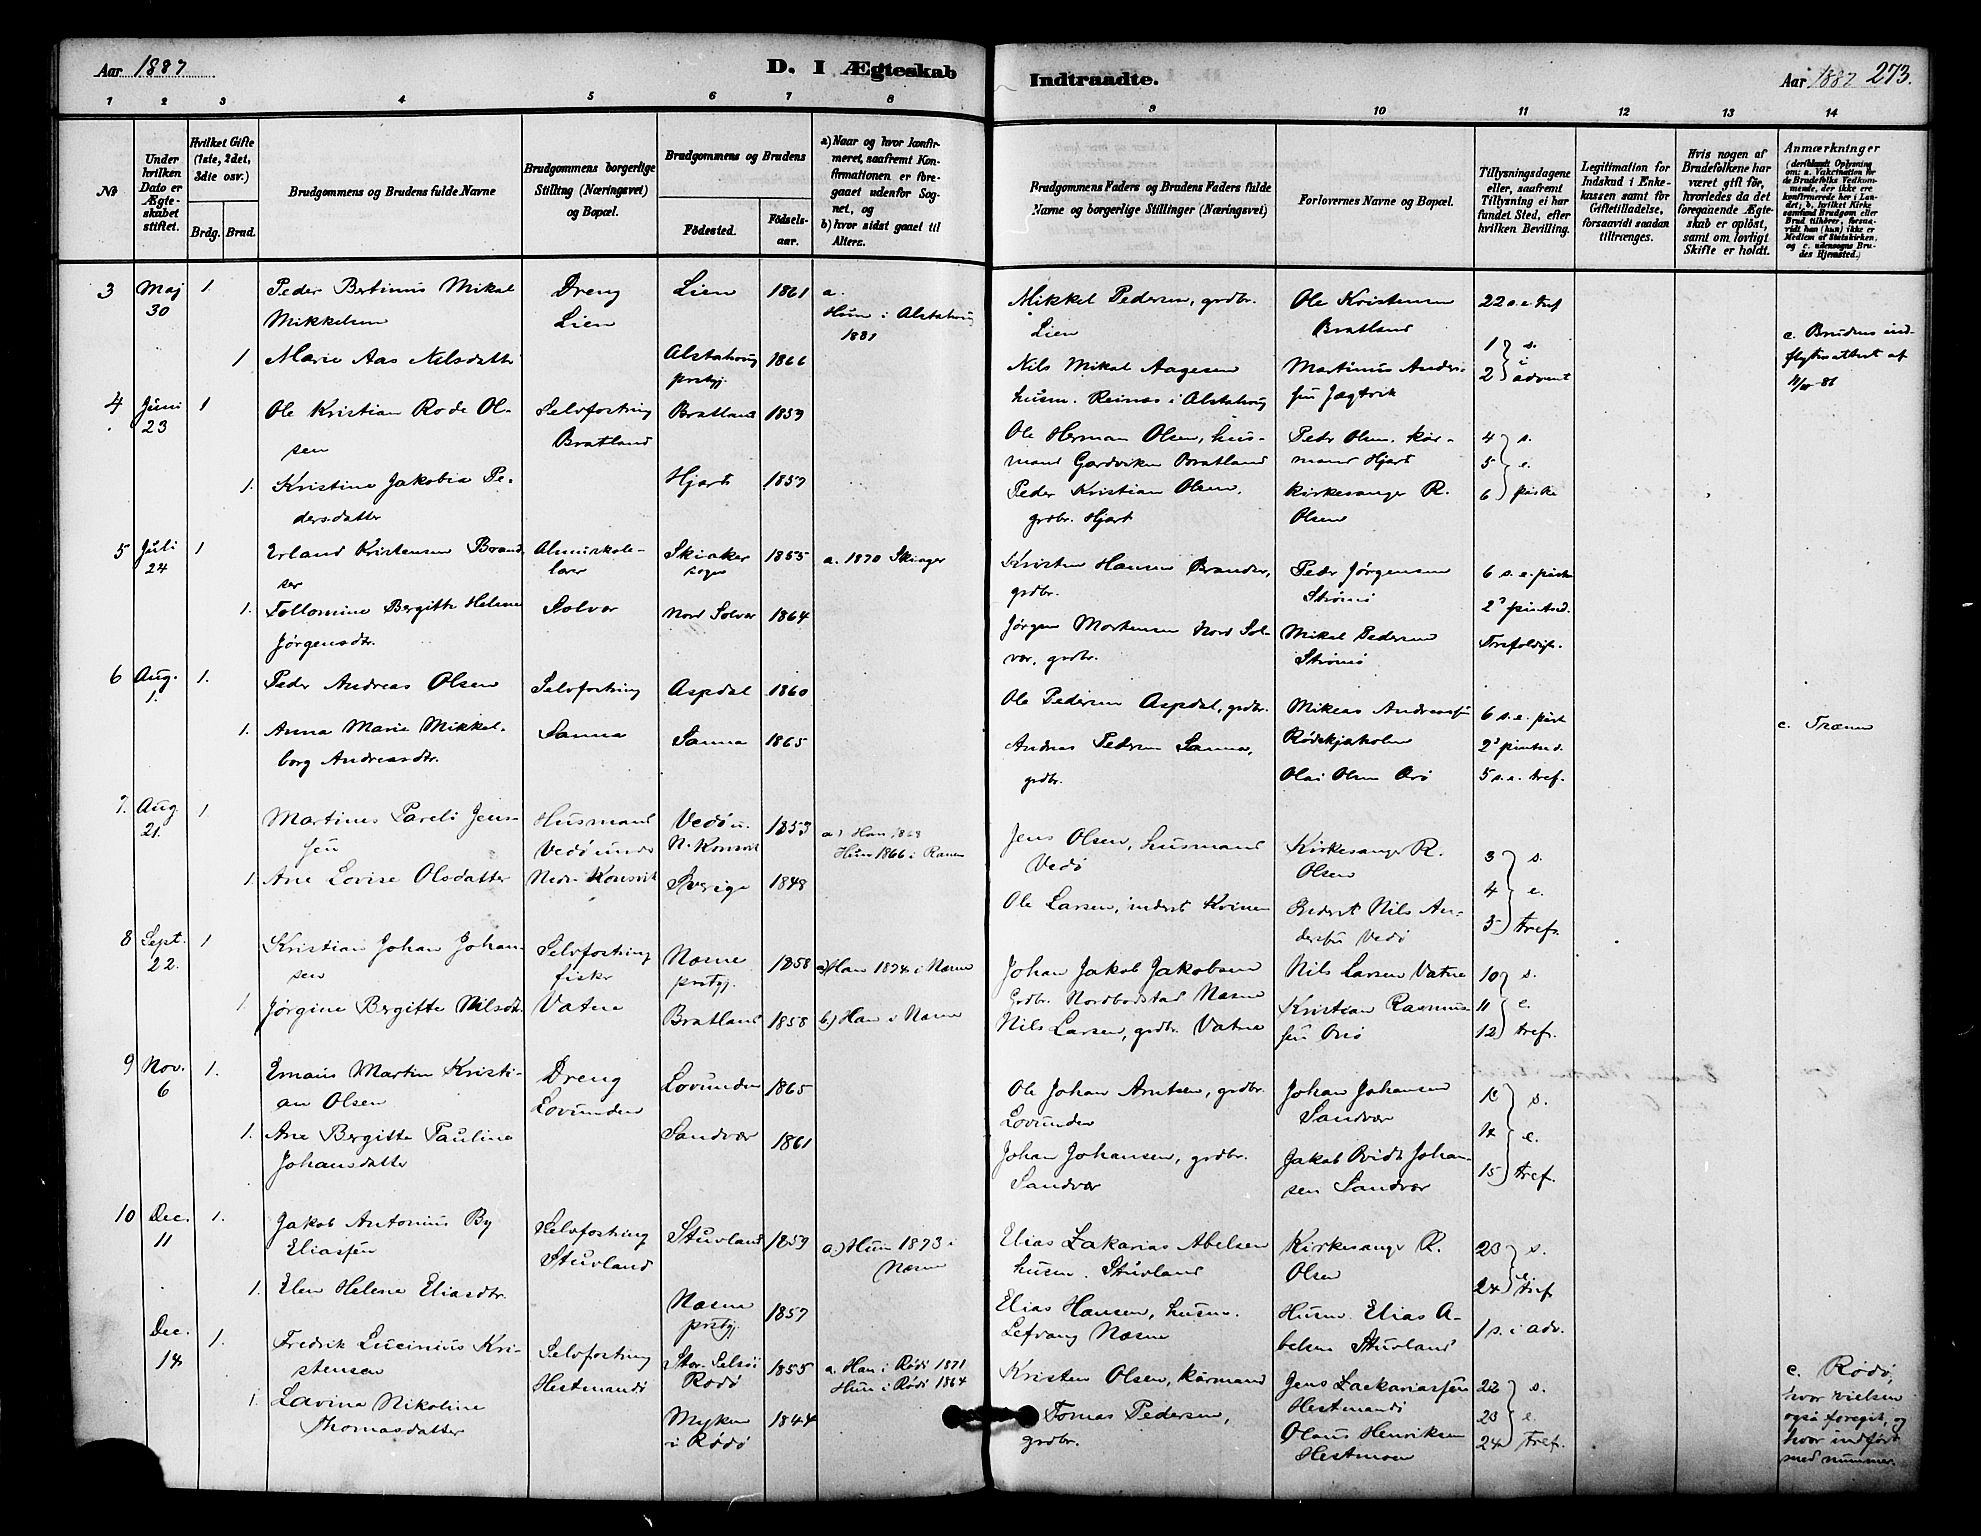 Aar 1887
D. I Ægteskab
Indtraadte.
Aar 1887
273.
1 2 3 4 5 6 7 8 9 10 11 12 13 14
№
Under
hvilken
Dato er
Ægte-
skabet
stiftet.
Hvilket Gifte
(1ste, 2det,
3die osv.)
Brdg. Brud.
Brudgommens og Brudens fulde Navne
Brudgommens borgerlige
Stilling (Næringsvei)
og Bopæl.
Brudgommens og Brudens
Födested.
Födsels-
aar.
a) Naar og hvor konfir-
meret, saafremt Kon-
firmationen er fore-
gaaet udenfor Sog-
net, og
b) hvor sidst gaaet til
Alters.
Brudgommens Faders og Brudens Faders fulde
Navne og borgerlige Stillinger (Næringsvei)
Forlovernes Navne og Bopæl.
Tillysningsdagene
eller, saafremt
Tillysning ei har
fundet Sted, efter
hvilken Bevilling.
Legitimation for
Indskud i Ænke-
kassen samt for
Giftetilladelse,
forsaavidt saadan
tiltrænges.
Hvis nogen af
Brudefolkene har
været gift för,
hvorledes da det
foregaaende Ægte-
skab er oplöst,
samt om lovligt
Skifte er holdt.
Anmærkninger
(deriblandt Oplysning
om: a. Vakcination for
de Brudefolks Vedkom-
mende, der ikke ere
konfirmerede her i Lan-
det; b. hvilket Kirke
samfund Brudgom eller
Brud tilhörer, forsaa-
vidt han (hun) ikke er
Medlem af Statskirken,
og c. udensogns Bru-
des Hjemsted.)
3 Maj 30 1 Peder Bertinus Mikal
Mikkelsen
Dreng
Lien
Lien 1861
a.
Hun i Alstahoug
1881
Mikkel Pedersen, grdbr.
Lien
Ole Kristensen
Bratland
22 s. e. tref
1 Marie Aas Nilsdatter
Alstahoug
prstgj. 1866
Nils Mikal Aagesen
husm. Reinæs i Alstahoug
Martinus Andr-
sen Jægtvik
1 s.
2 i advent
c. Brudens ind-
flytn.attest af
4 Juni 23 1 Ole Kristian Rode Ol-
sen
Selvfostring
Bratland
Bratland 1859
Ole Herman Olsen, hus-
mand Gardviken Bratland
Peder Olsen. kår-
mand Hjart
4 s.
5 e.
6 påske
1. Kristine Jakobia Pe-
dersdatter
Hjart 1857
Peder Kristian Olsen,
grdbr. Hjart
Kirkesanger R.
Olsen
5 Juli 24 1 Erland Kristensen Brand-
ser
Almuskole-
lærer
Solvær
Skiaker
sogn 1855
a. 1870 Skiager
Kristen Hansen Brandser,
grdbr.
Peder Jørgensen
Strømö
6 s. e. påske
2den pintsd.
Trefoldigh.
1. Tollomine Bergitte Helene
Jørgensdtr.
Nord Solvær 1864
Jørgen Mortensen Nord Sol-
vær, grdbr.
Mikal Pedersen
Strømö
6 Aug. 1. 1. Peder Andreas Olsen
Selvfostring
Sanna
Aspdal 1860
Ole Pedersen Aspdal, grdbr.
Mikeas Andreassen
Rødskjæholm
6 s. e. påsk
2den pintsd.
5 s. e. tref.
1. Anna Marie Mikkel-
borg Andreasdtr.
Sanna 1865
Andreas Pedersen Sanna,
grdbr.
Olai Olsen Orö
c. Træna
7. Aug 21. 1 Martinus Pareli Jens-
sen
Husmand
Vedö under
Nedr. Konsvik
Vedö u.
N. Konsvik 1859
a) Han 1868
Hun 1866 i Ranen
Jens Olsen, husmand
Vedö
Kirkesanger R.
Olsen
3 s.
4 e.
5 tref.
1. Ane Lovise Olsdatter
Sverige 1848
Ole Larsen, inderst Kvinen
Inderst Nils An-
dersen Vedö
8 Sept. 22. 1 Kristian Johan Johan-
sen
Selvfostring
fisker
Vatne
Næsne
prstgj. 1858
a) Han 1874 i Næsne
b) Han i Næsne
Johan Jakob Jakobsen
Grdbr. Nordbodstad Næsne
Nils Larsen Vatne
10 s.
11 e.
12 tref.
1. Jørgine Bergitte Nilsdtr.
Bratland 1858
Nils Larsen, grdbr. Vatne
Kristian Rasmus-
sen Orö
9 Nov. 6 1. Emaus Martin Kristi-
an Olsen
Dreng
Lovunden
Lovunden 1865
Ole Johan Arntsen, grdbr.
Lovunden
Johan Johansen
Sandvær
s.
14 e.
15 tref.
1. Ane Bergitte Pauline
Johansdatter
Sandvær 1861
Johan Johansen, grdbr.
Sandvær
Jakob Johan-
sen Sandvær
10 Dec. 11 1. Jakob Antonius By
Eliassen
Selvfostring
Stuvland
Stuvland 1859
a) Hun 1873 i
Næsne
Elias Zakarias Abelsen
husm. Stuvland
Kirkesanger R.
Olsen
23 s.
24 e. tref
1 s. i adv.
1. Elen Helene Eliasdtr.
Næsne
prstgj. 1857
Elias Hansen, husm.
Lefvang Næsne
Husm. Elias A-
belsen Stuvland
Dec. 14 1. Fredrik Lucinius Kri-
stensen
Selvfostring
Hestmandö
Stor-Selsöi
Rødö 1855
a. Han i Rødö 1871
Hun i Rødö 1864
Kristen Olsen, kårmand
Jens Zackariassen
Hestmandö
22 s.
23 e.
24 tref.
1. Lavina Nikoline
Thomasdatter
Myken
i Rødö 1844
Tomas Pedersen,
grdbr.
Olaus Henriksen
Hestmoen
c. Rødö,
hvor vielsen
også foregik, og
hvor indført
med nummer.